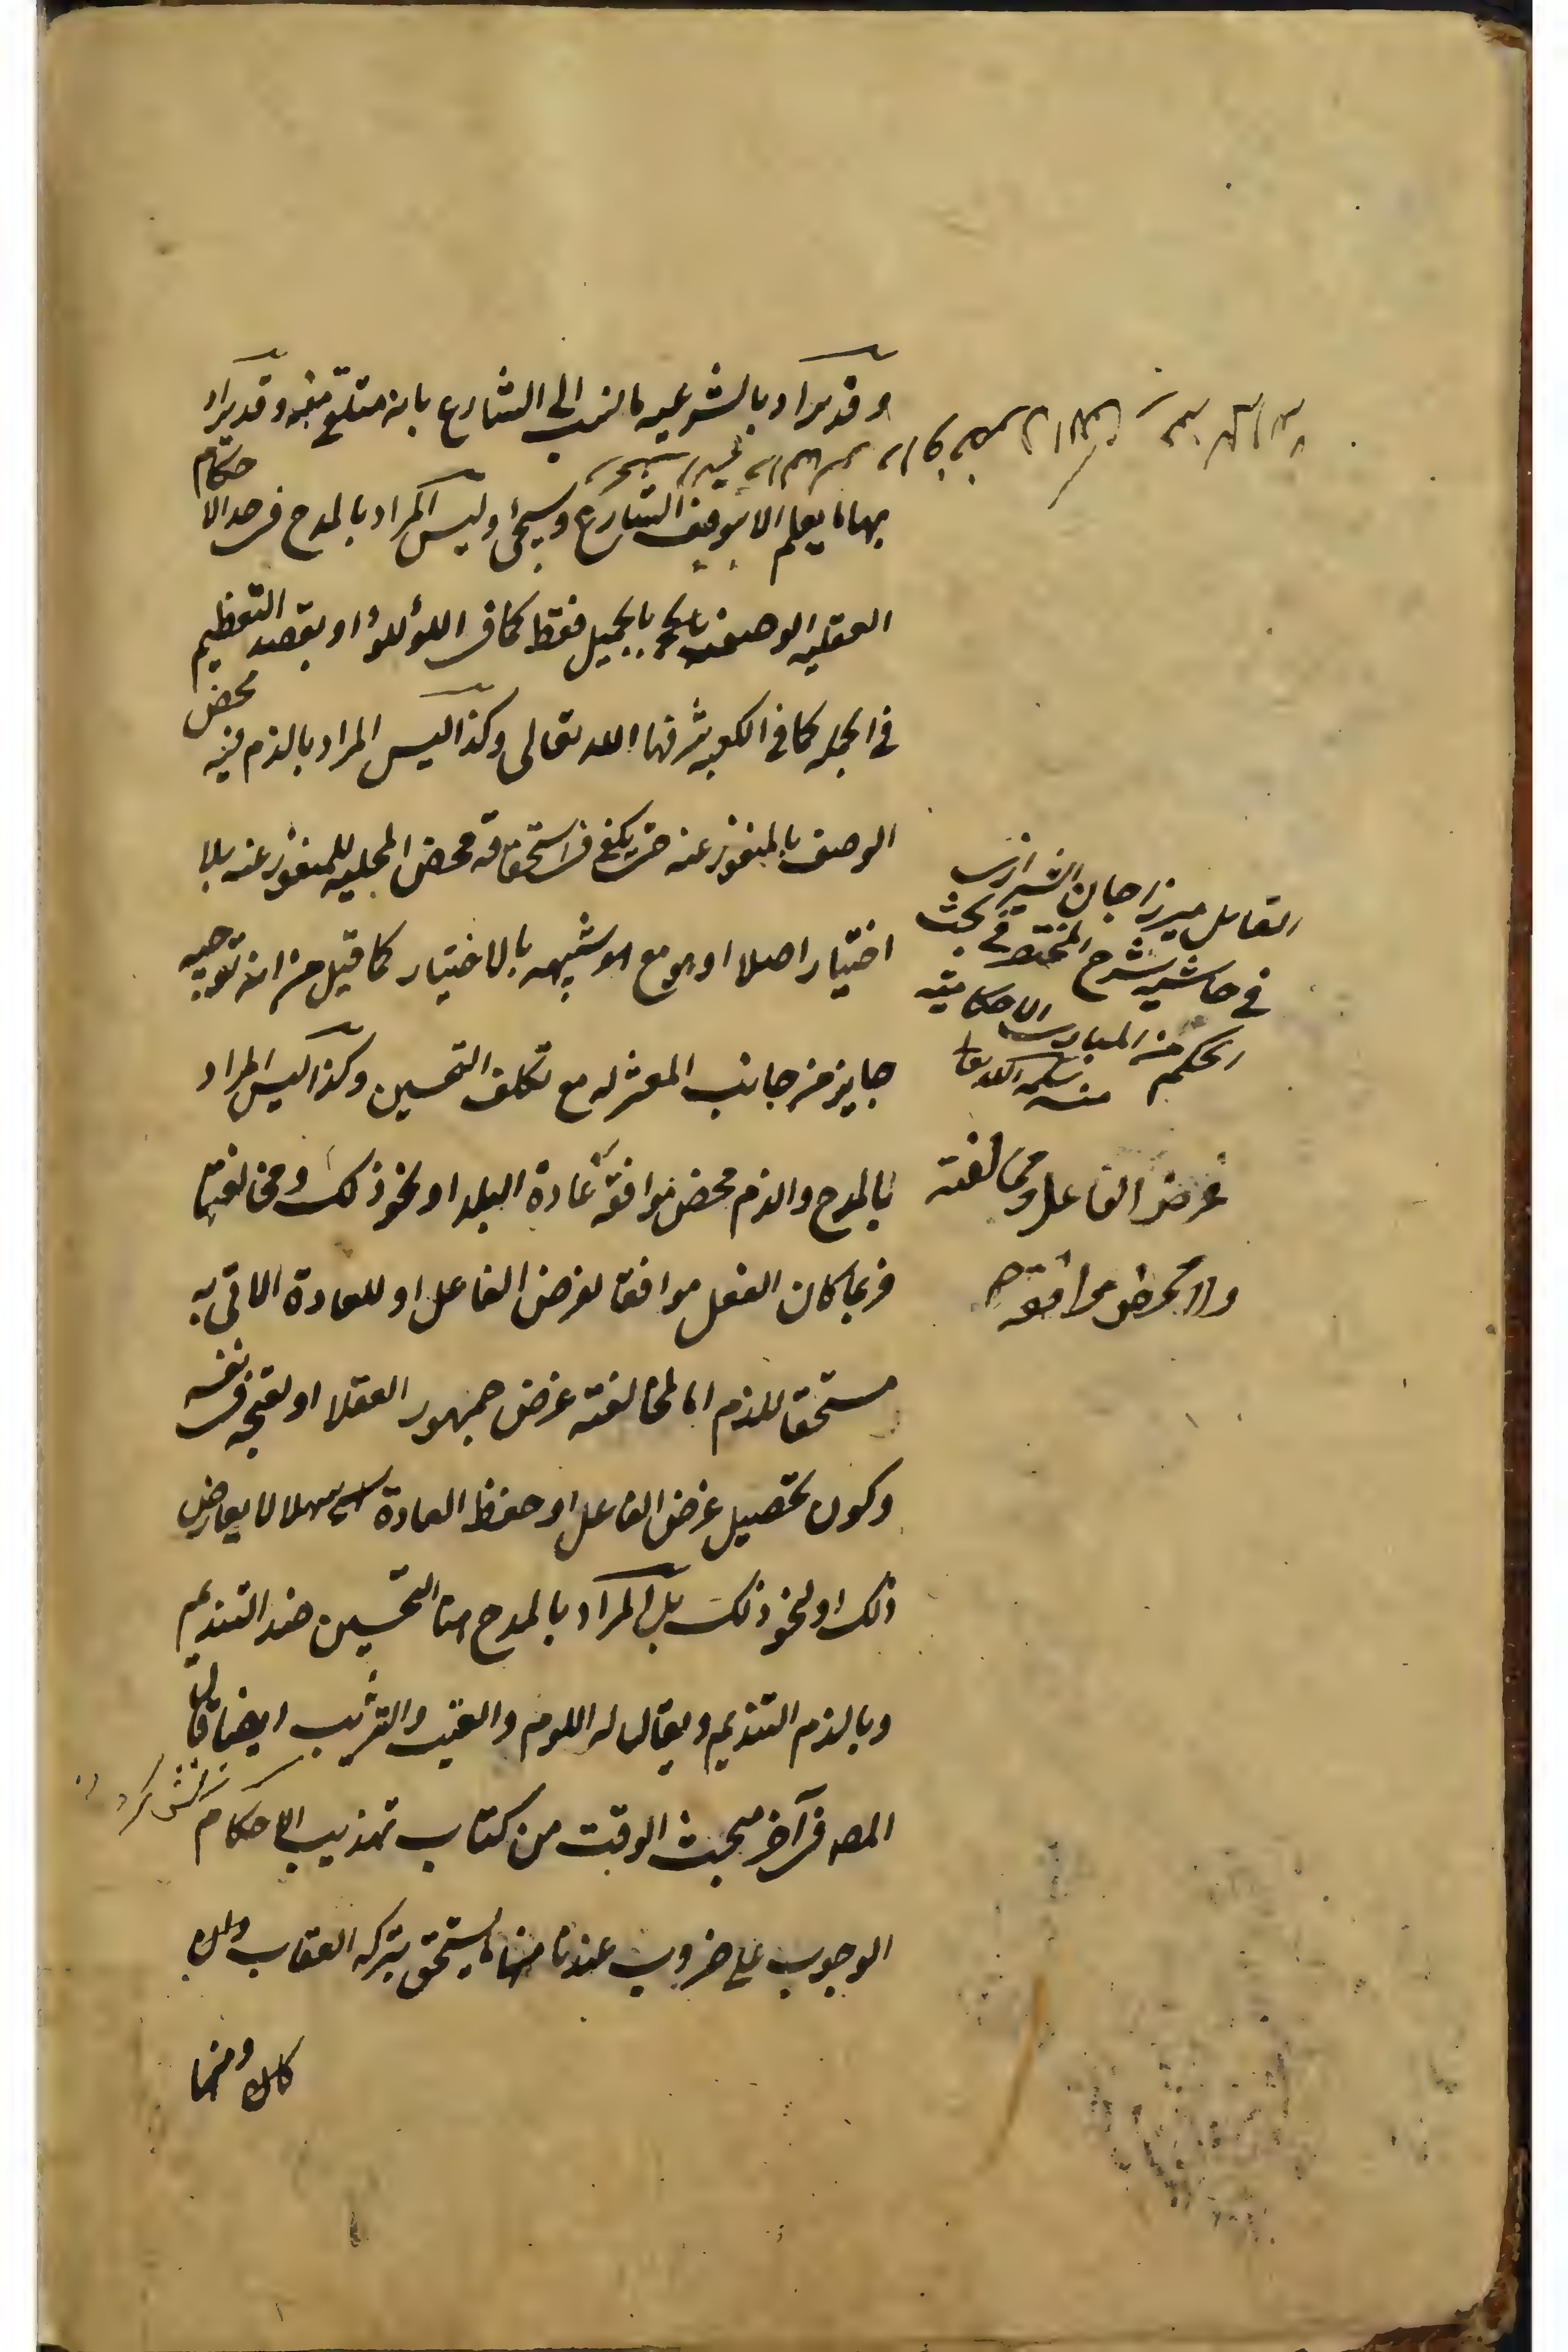 وقد يراد بالشرعيه ما ينسب الى الشارع بانه متلقى منه وقد يراد
بها ما لا يعلم الا بتوقيف الشارع وسيجئ وليس المراد بالمدح في هذه الاحكام
العقليه الوصف بالجميل فقط كما في اللؤلؤ او بقصد التعظيم
في الجمله كما في الكعبه شرفها الله تعالى وكذا ليس المراد بالذم فيه محض
الوصف بالمنفور عنه حتى يكفي في استحقاقه محض المحليه للمنفور عنه بلا
اختيار اصلا او هو مع ما هو شبيه بالاختيار كما قيل من انه توجيه
جايز من جانب المعتزله مع تكلف التحسين وكذا ليس المراد
بالمدح والذم محض موافقة عادة البلد او نحو ذلك ومخالفتها
فربما كان الفعل موافقا لغرض الفاعل او للعادة الاتي به
مستحقا للذم اما لمخالفته غرض جمهور العقلا او لقبحه في نفسه
وكون تحصيل غرض الفاعل او حفظ العادة سهلا لا يعارض
ذلك او نحو ذلك بل المراد بالمدح هنا التحسين ضد التنديم
وبالذم التنديم ويقال له اللوم والعتب والتثريب ايضا قال
المصه في آخر مبحث الوقت من كتاب تهذيب الاحكام
الوجوب على ضروب عندنا منها ما يستحق بتركه العقاب
ومنها
القائل ميرزا جان الشيرازي
في حاشيه شرح المختصر في بحث
الحكم من المبادي الاحكاميه
منه سلمه الله تعا
غرض الفاعل ومخالفته
ولا محض موافقه